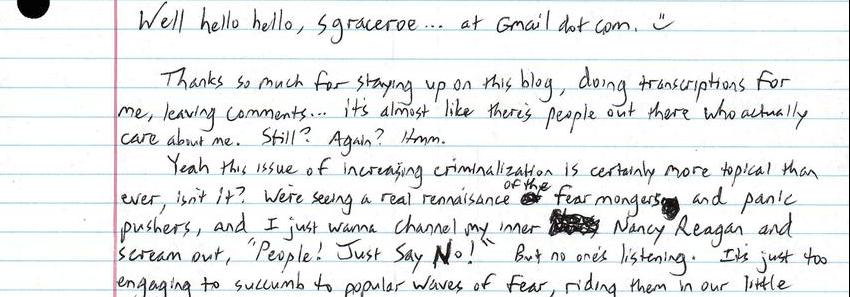 Well hello hello, sgraceroe... at Gmail dot com. :)
Thanks so much for staying up on this blog, doing transcriptions for
me, leaving comments... it's almost like there's people out there who actually
care about me. Still? Again? Hmm.
Yeah this issue of increasing criminalization is certainly more topical than
ever, isn't it? We're seeing a real rennaisance of the fear mongers and panic
pushers, and I just wanna channel my inner Nancy Reagan and
scream out, "People! Just Say No!" But no one's listening. It's just too
engaging to succumb to popular waves of fear, riding them in our little